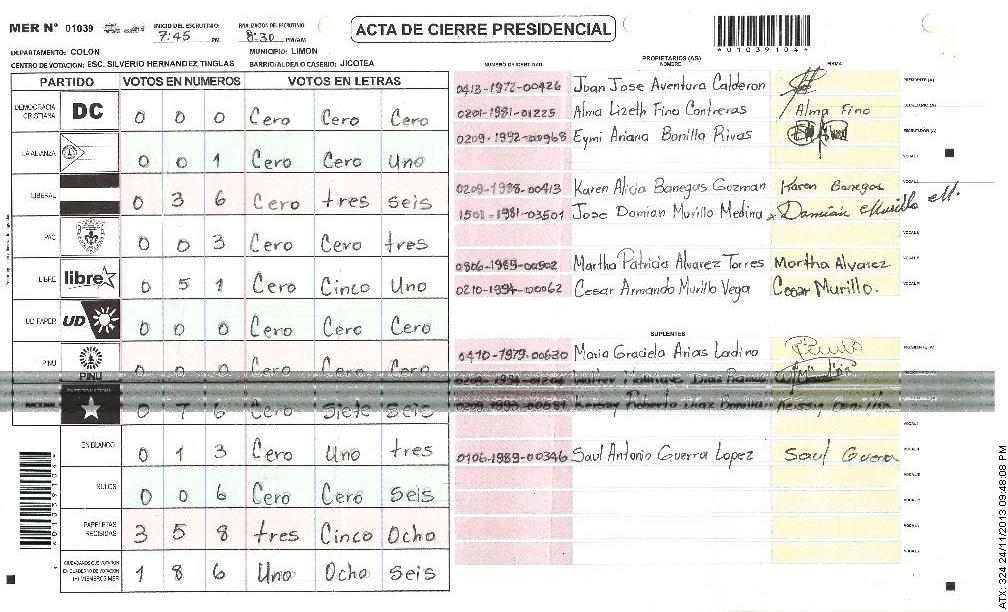 MER N° 01039 INICIO DEL ESCRUTINIO: 7:45 PM FINALIZACION DEL ESCRUTINIO: 8:30 PM/AM
ACTA DE CIERRE PRESIDENCIAL
4010391044
DEPARTAMENTO: COLON MUNICIPIO: LIMON
CENTRO DE VOTACION: ESC. SILVERIO HERNANDEZ TINGLAS BARRIO/ALDEA O CASERIO: JICOTEA
PARTIDO VOTOS EN NUMEROS VOTOS EN LETRAS
DEMOCRACIA CRISTIANA DC 0 0 0 Cero Cero Cero
LA ALIANZA 0 0 1 Cero Cero Uno
LIBERAL 0 3 6 Cero tres seis
PAC 0 0 3 Cero Cero tres
LIBRE libre 0 5 1 Cero Cinco Uno
UD FAPER UD 0 0 0 Cero Cero Cero
PINU PINU 0 0 0 Cero Cero Cero
NACIONAL 0 7 6 Cero Siete Seis
EN BLANCO 0 1 3 Cero Uno tres
NULOS 0 0 6 Cero Cero Seis
PAPELETAS RECIBIDAS 3 5 8 tres Cinco Ocho
CIUDADANOS QUE VOTARON EN CUADERNO DE VOTACION (+) MIEMBROS MER 1 8 6 Uno Ocho Seis
PROPIETARIOS (AS)
NUMERO DE IDENTIDAD NOMBRE FIRMA
0413-1972-00426 Juan Jose Aventura Calderon PRESIDENTE (A)
0201-1981-01225 Alma Lizeth Fino Contreras Alma Fino SECRETARIO (A)
0209-1992-00968 Eymi Ariana Bonilla Rivas ESCRUTADOR (A)
VOCAL I
0209-1988-00413 Karen Alicia Banegas Guzman Karen Banegas
1501-1981-03501 Jose Damian Murillo Medina Damian Murillo M.
0806-1989-00902 Martha Patricia Alvarez Torres Martha Alvarez
0210-1994-00062 Cesar Armando Murillo Vega Cesar Murillo.
SUPLENTES
0410-1979-00630 Maria Graciela Arias Ladino
Diaz Ramos
Roberto Diaz Bonilla
0106-1989-00346 Saul Antonio Guerra Lopez Saul Guerra
ATX: 324 24/11/2013 09:48:08 PM